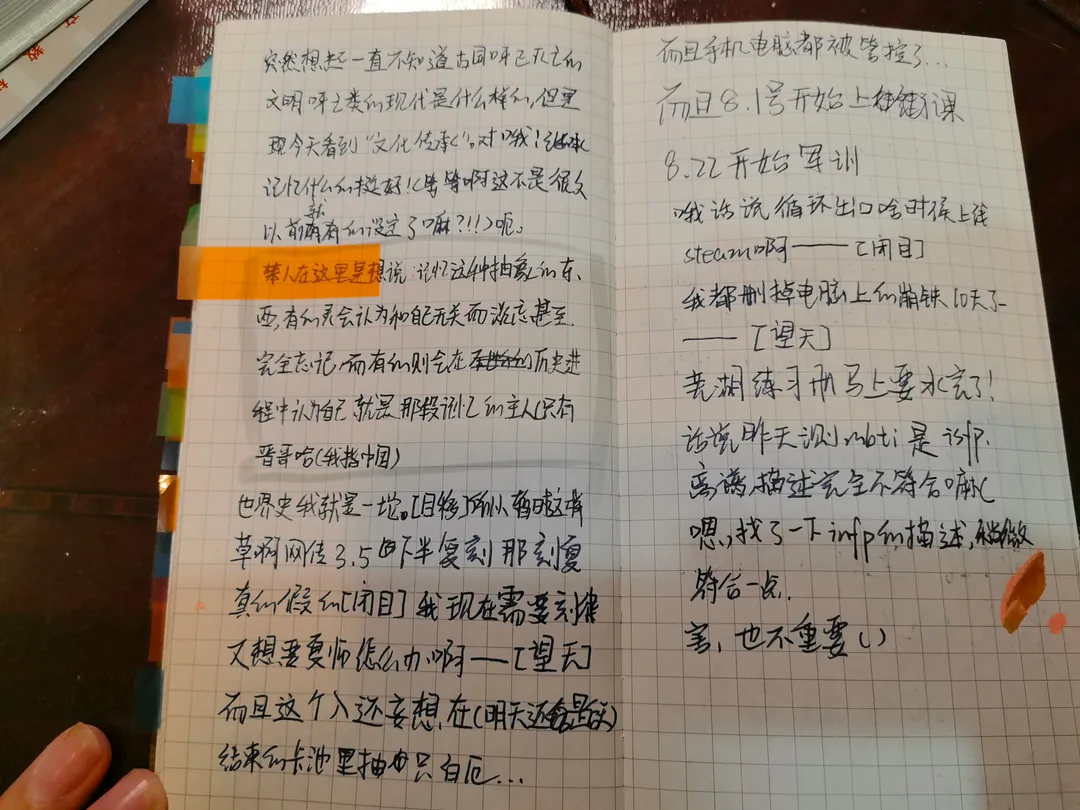 突然想起一直不知道古国呀已灭亡的
文明呀之类的现代是什么样的,但是
现今天看到"文化传承"。对哦!
记忆什么的挺好!(等等啊这不是很久
以前就有的设定了嘛?!!)呃。
本人在这里是想说:记忆这种抽象的东
西,有的灵会认为和自己无关而淡忘甚至
完全忘记,而有的则会在历史进
程中认为自己就是那段记忆的主人(只有
晋哥哈(我指中国)
世界史我就是一坨。[目移]所以暂时这样
草啊网传3.5的下半复刻那刻夏
真的假的[闭目]我现在需要刻律
又想要夏师怎么办啊——[望天]
而且这个人还妄想在(明天还是后天)
结束的卡池里抽出只白厄...
而且手机电脑都被管控了...
而且8.1号开始上课
8.22开始军训
哦话说循环出口啥时候上线
steam啊——[闭目]
我都删掉电脑上的崩铁10天了
——[望天]
芜湖练习册马上要水完了!
话说昨天测mbti是isfp.
离谱,描述完全不符合嘛(
嗯,找了一下infp的描述,稍微
符合一点.
害,也不重要()
文教